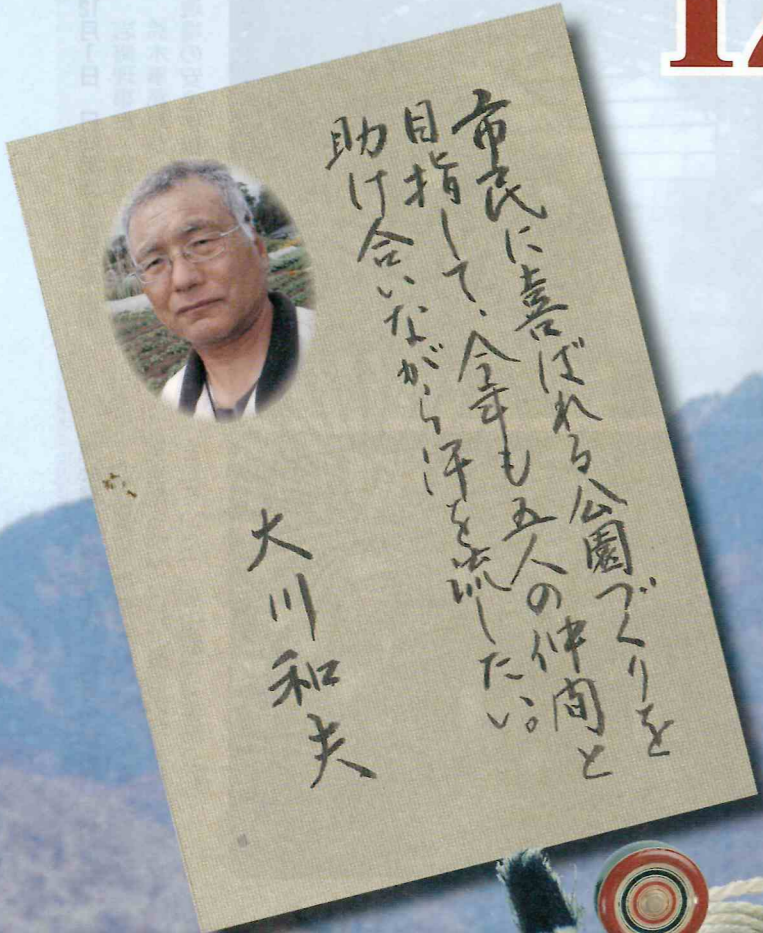 市民に喜ばれる公園づくりを
目指して、今年も五人の仲間と
助け合いながら汗を流したい。
大川和夫